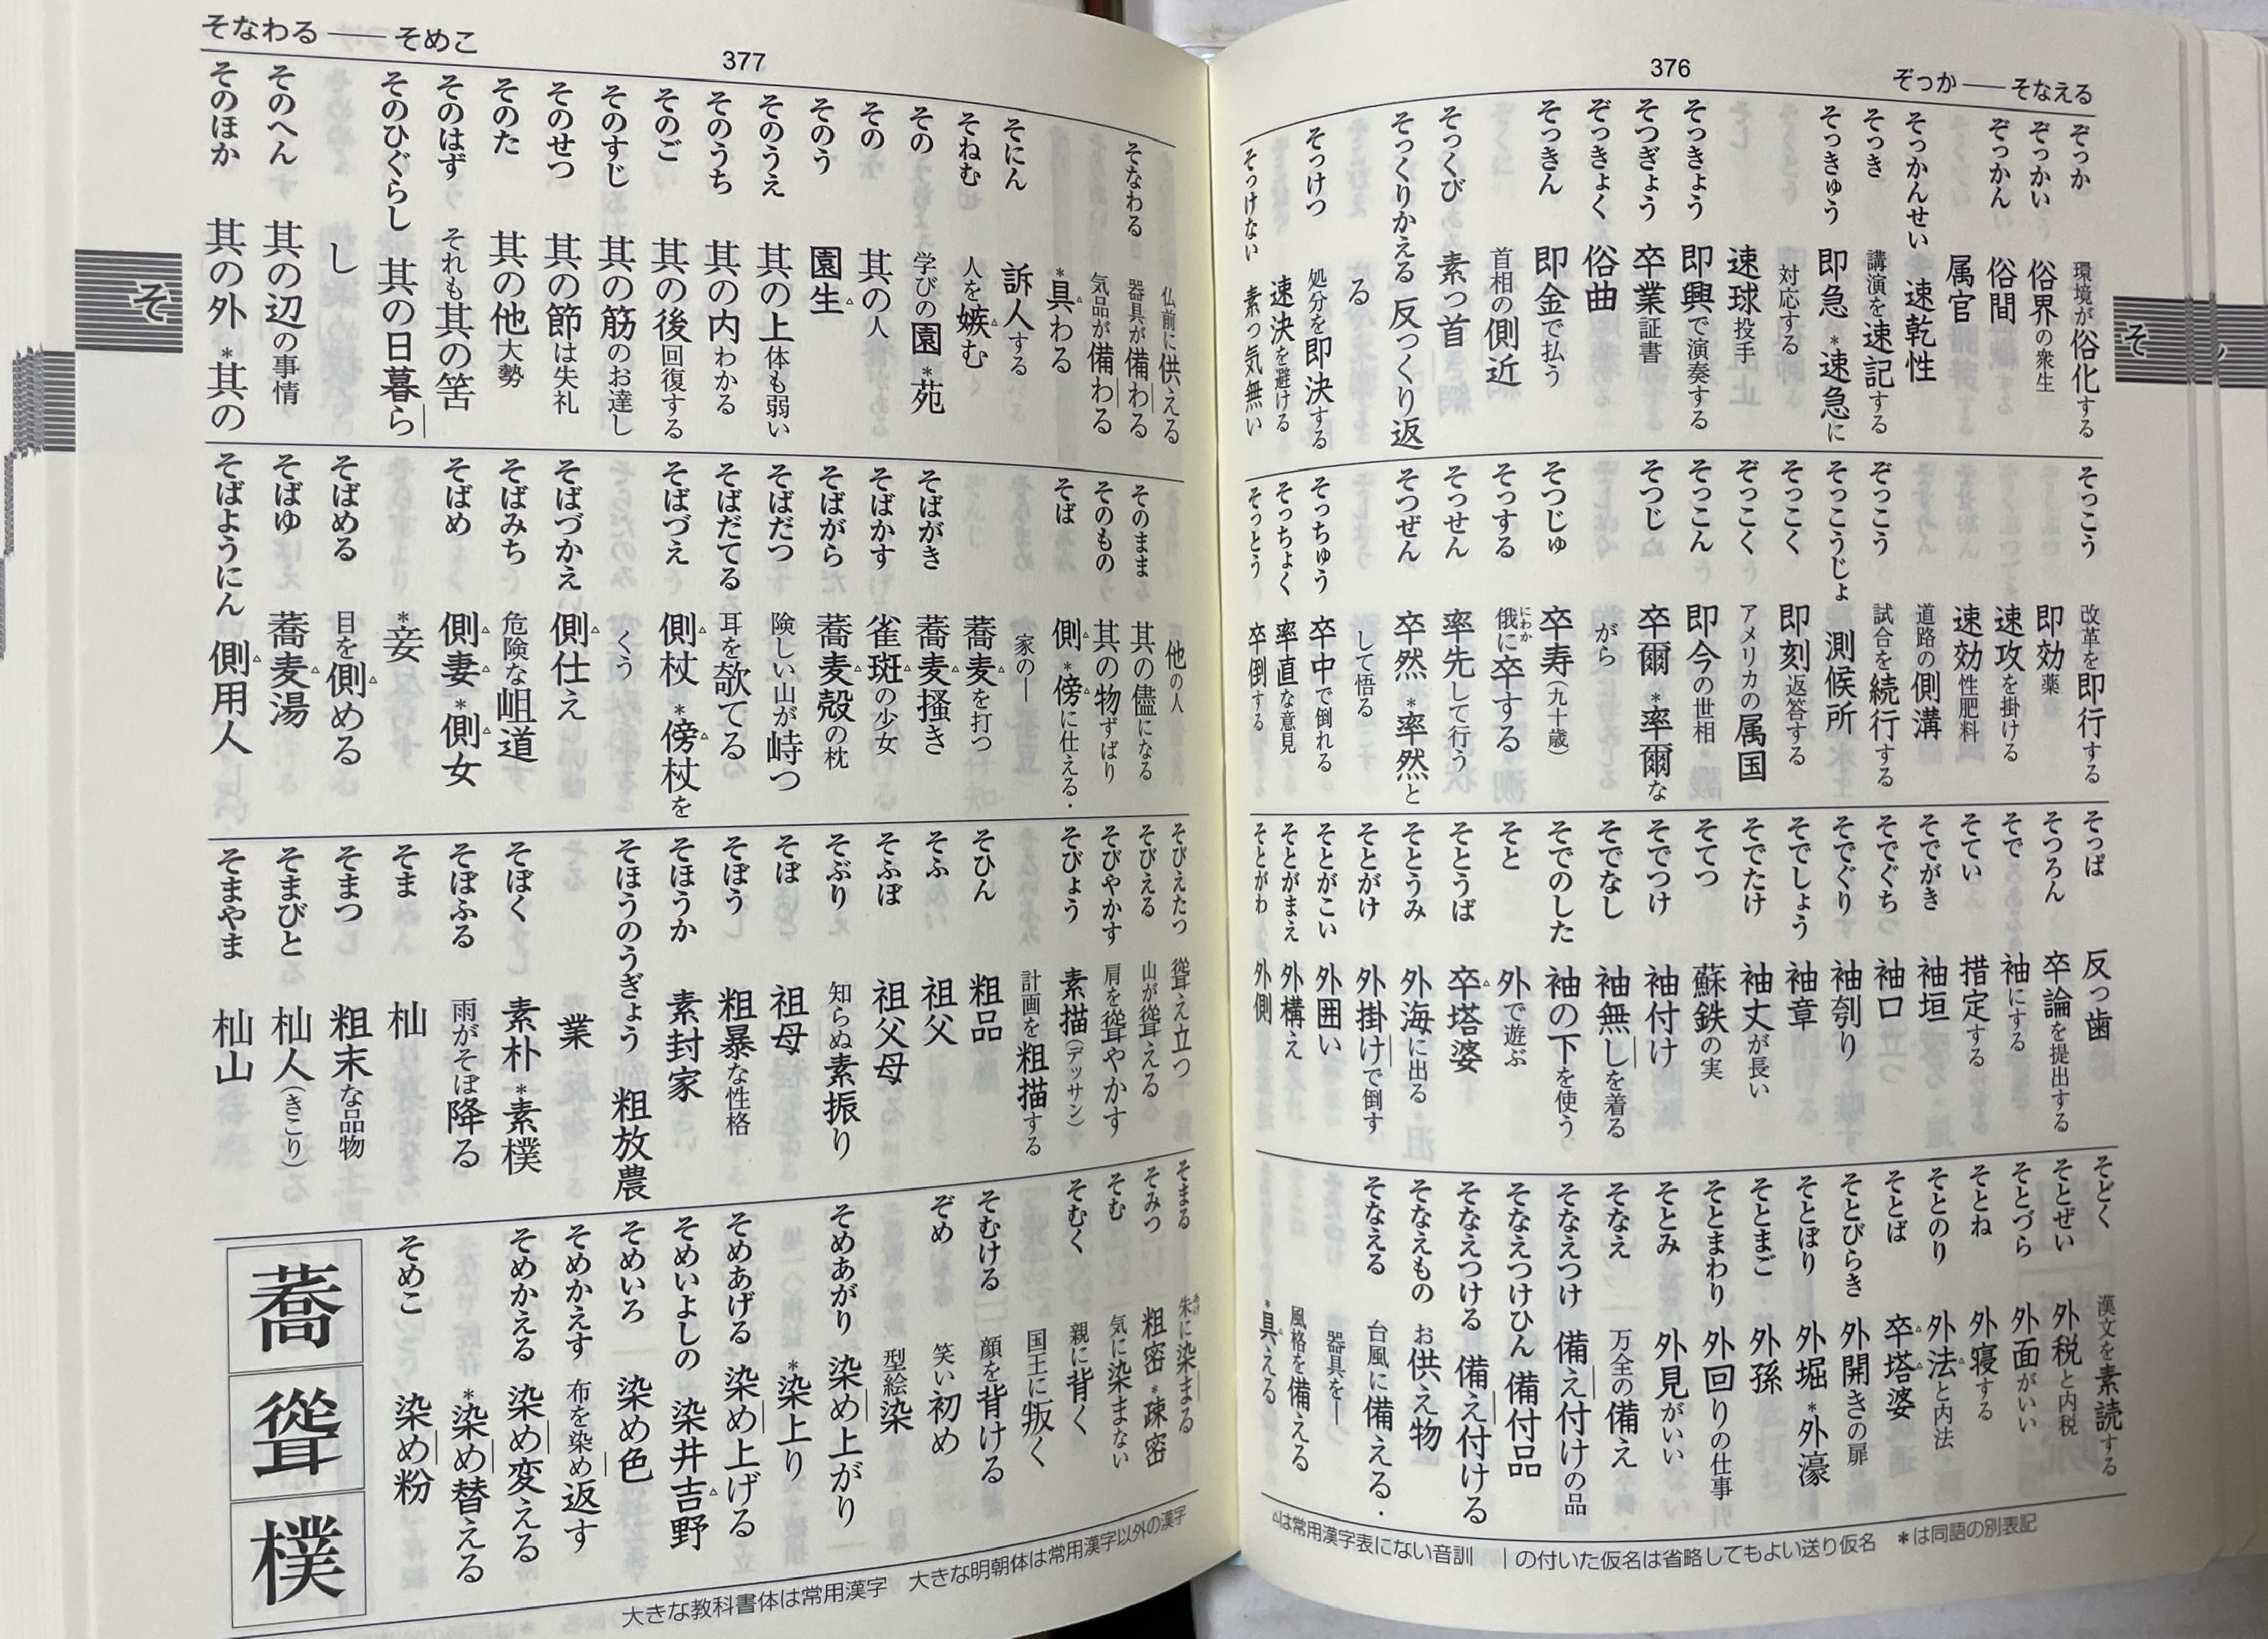 376
ぞっか――そなえる
ぞっか 環境が俗化する
ぞっかい 俗界の衆生
ぞっかん 俗間
属官
そっかんせい 速乾性
そっき 講演を速記する
そっきゅう 即急 *速急に
対応する
速球投手
そっきょう 即興で演奏する
そつぎょう 卒業証書
ぞっきょく 俗曲
そっきん 即金で払う
首相の側近
そっくび 素っ首
そっくりかえる 反っくり返
る
そっけつ 処分を即決する
速決を避ける
そっけない 素っ気無い
そっこう 改革を即行する
即効薬
速攻を掛ける
速効性肥料
道路の側溝
ぞっこう 試合を続行する
そっこうじょ 測候所
そっこく 即刻返答する
ぞっこく アメリカの属国
そっこん 即今の世相
そつじ 卒爾 *率爾な
がら
そつじゅ 卒寿(九十歳)
そっする 俄にわかに卒する
そっせん 率先して行う
そつぜん 卒然 *率然と
して悟る
そっちゅう 卒中で倒れる
そっちょく 率直な意見
そっとう 卒倒する
そっぱ 反っ歯
そつろん 卒論を提出する
そで 袖にする
そてい 措定する
そでがき 袖垣
そでぐち 袖口
そでぐり 袖刳り
そでしょう 袖章
そでたけ 袖丈が長い
そてつ 蘇鉄の実
そでつけ 袖付け
そでなし 袖無しを着る
そでのした 袖の下を使う
そと 外で遊ぶ
そとうば 卒△塔婆
そとうみ 外海に出る
そとがけ 外掛けで倒す
そとがこい 外囲い
そとがまえ 外構え
そとがわ 外側
そどく 漢文を素読する
そとぜい 外税と内税
そとづら 外面がいい
そとね 外寝する
そとのり 外法△と内法
そとば 卒△塔△婆
そとびらき 外開きの扉
そとぼり 外堀 *外濠
そとまご 外孫
そとまわり 外回りの仕事
そとみ 外見がいい
そなえ 万全の備え
そなえつけ 備え付けの品
そなえつけひん 備付品
そなえつける 備え付ける
そなえもの お供え物
そなえる 台風に備える・
器具を―
風格を備える
*具△える
△は常用漢字表にない音訓 |の付いた仮名は省略してもよい送り仮名 *は同語の別表記
そ
そなわる――そめこ
377
仏前に供える
そなわる 器具が備わる
気品が備わる
*具△わる
そにん 訴人する
そねむ 人を嫉△む
その 学びの園 *苑
その 其の人
そのう 園生△
そのうえ 其の上体も弱い
そのうち 其の内わかる
そのご 其の後回復する
そのすじ 其の筋のお達し
そのせつ 其の節は失礼
そのた 其の他大勢
そのはず それも其の筈
そのひぐらし 其の日暮ら
し
そのへん 其の辺の事情
そのほか 其の外 *其の
他の人
そのまま 其の儘になる
そのもの 其の物ずばり
そば 側△ *傍△に仕える・
家の―
蕎麦△を打つ
そばがき 蕎麦△搔き
そばかす 雀斑△の少女
そばがら 蕎麦△殻の枕
そばだつ 険しい山が峙つ
そばだてる 耳を欹てる
そばづえ 側△杖 *傍△杖を
くう
そばづかえ 側△仕え
そばみち 危険な岨道
そばめ 側△妻△ *側△女
*妾
そばめる 目を側△める
そばゆ 蕎麦△湯
そばようにん 側△用人
そびえたつ 聳え立つ
そびえる 山が聳える
そびやかす 肩を聳やかす
そびょう 素描(デッサン)
計画を粗描する
そひん 粗品
そふ 祖父
そふぼ 祖父母
そぶり 知らぬ素振り
そぼ 祖母
そぼう 粗暴な性格
そほうか 素封家
そほうのうぎょう 粗放農
業
そぼく 素朴 *素樸
そぼふる 雨がそぼ降る
そま 杣
そまつ 粗末な品物
そまびと 杣人(きこり)
そまやま 杣山
そまる 朱に染まる
そみつ 粗密 *疎密
そむ 気に染まない
そむく 親に背く
国王に叛く
そむける 顔を背ける
ぞめ 笑い初め
型絵染
そめあがり 染め上がり
*染上り
そめあげる 染め上げる
そめいよしの 染井吉△野
そめいろ 染め色
そめかえす 布を染め返す
そめかえる 染め変える
*染め替える
そめこ 染め粉
蕎
聳
樸
大きな教科書体は常用漢字 大きな明朝体は常用漢字以外の漢字
そ